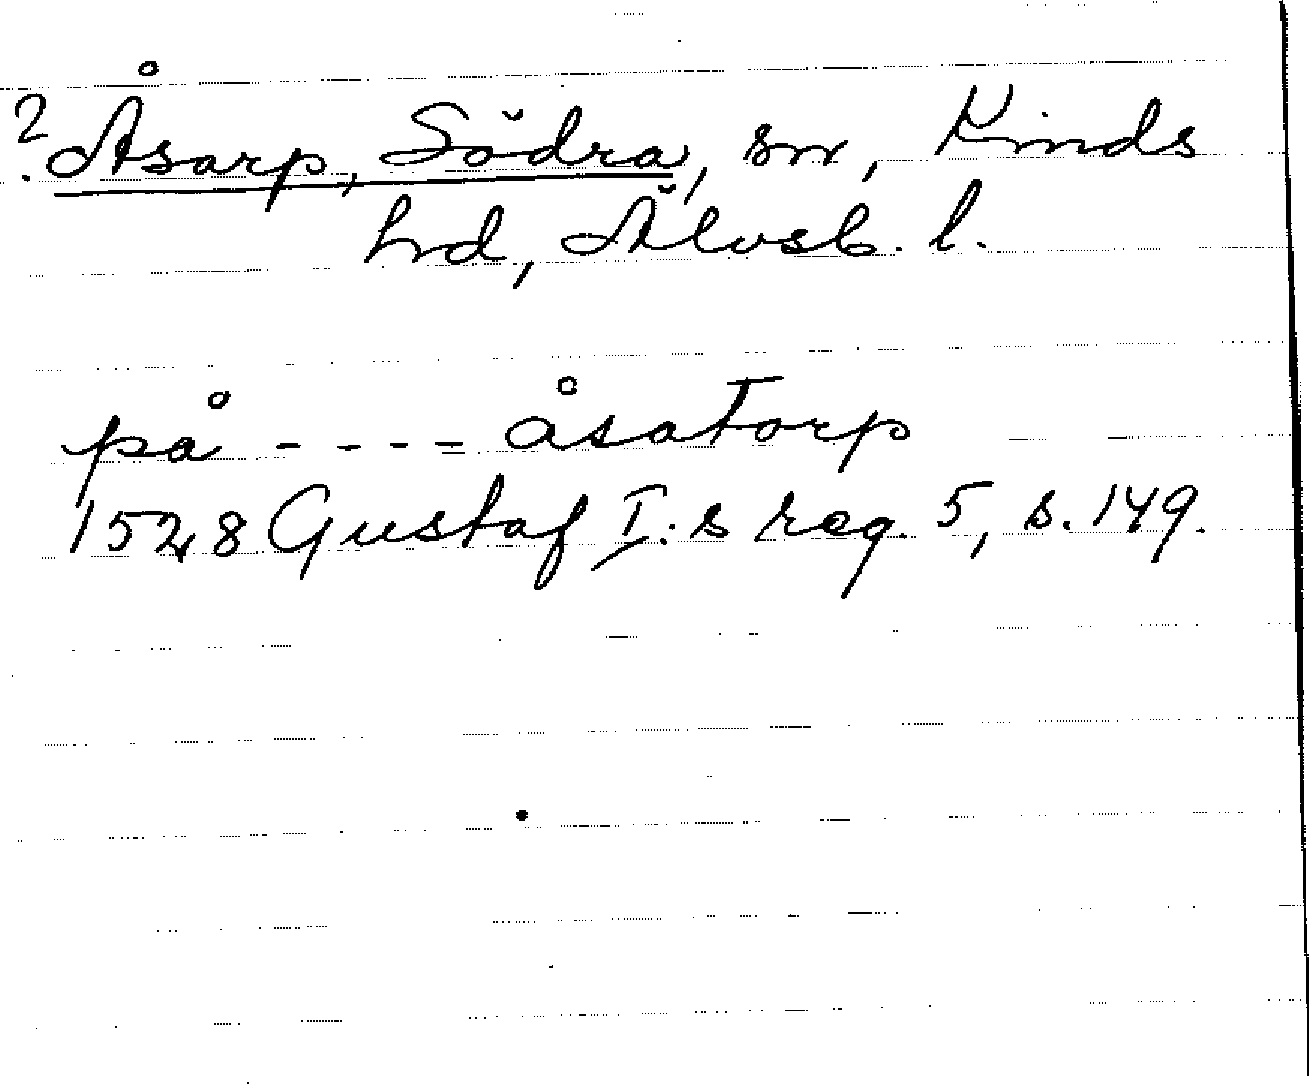 ? Åsarp, Södra, sn, Kinds
hrd, Älvsb. l.
på - - - - åsatorp
1528 Gustaf I:s reg. 5, s. 149.